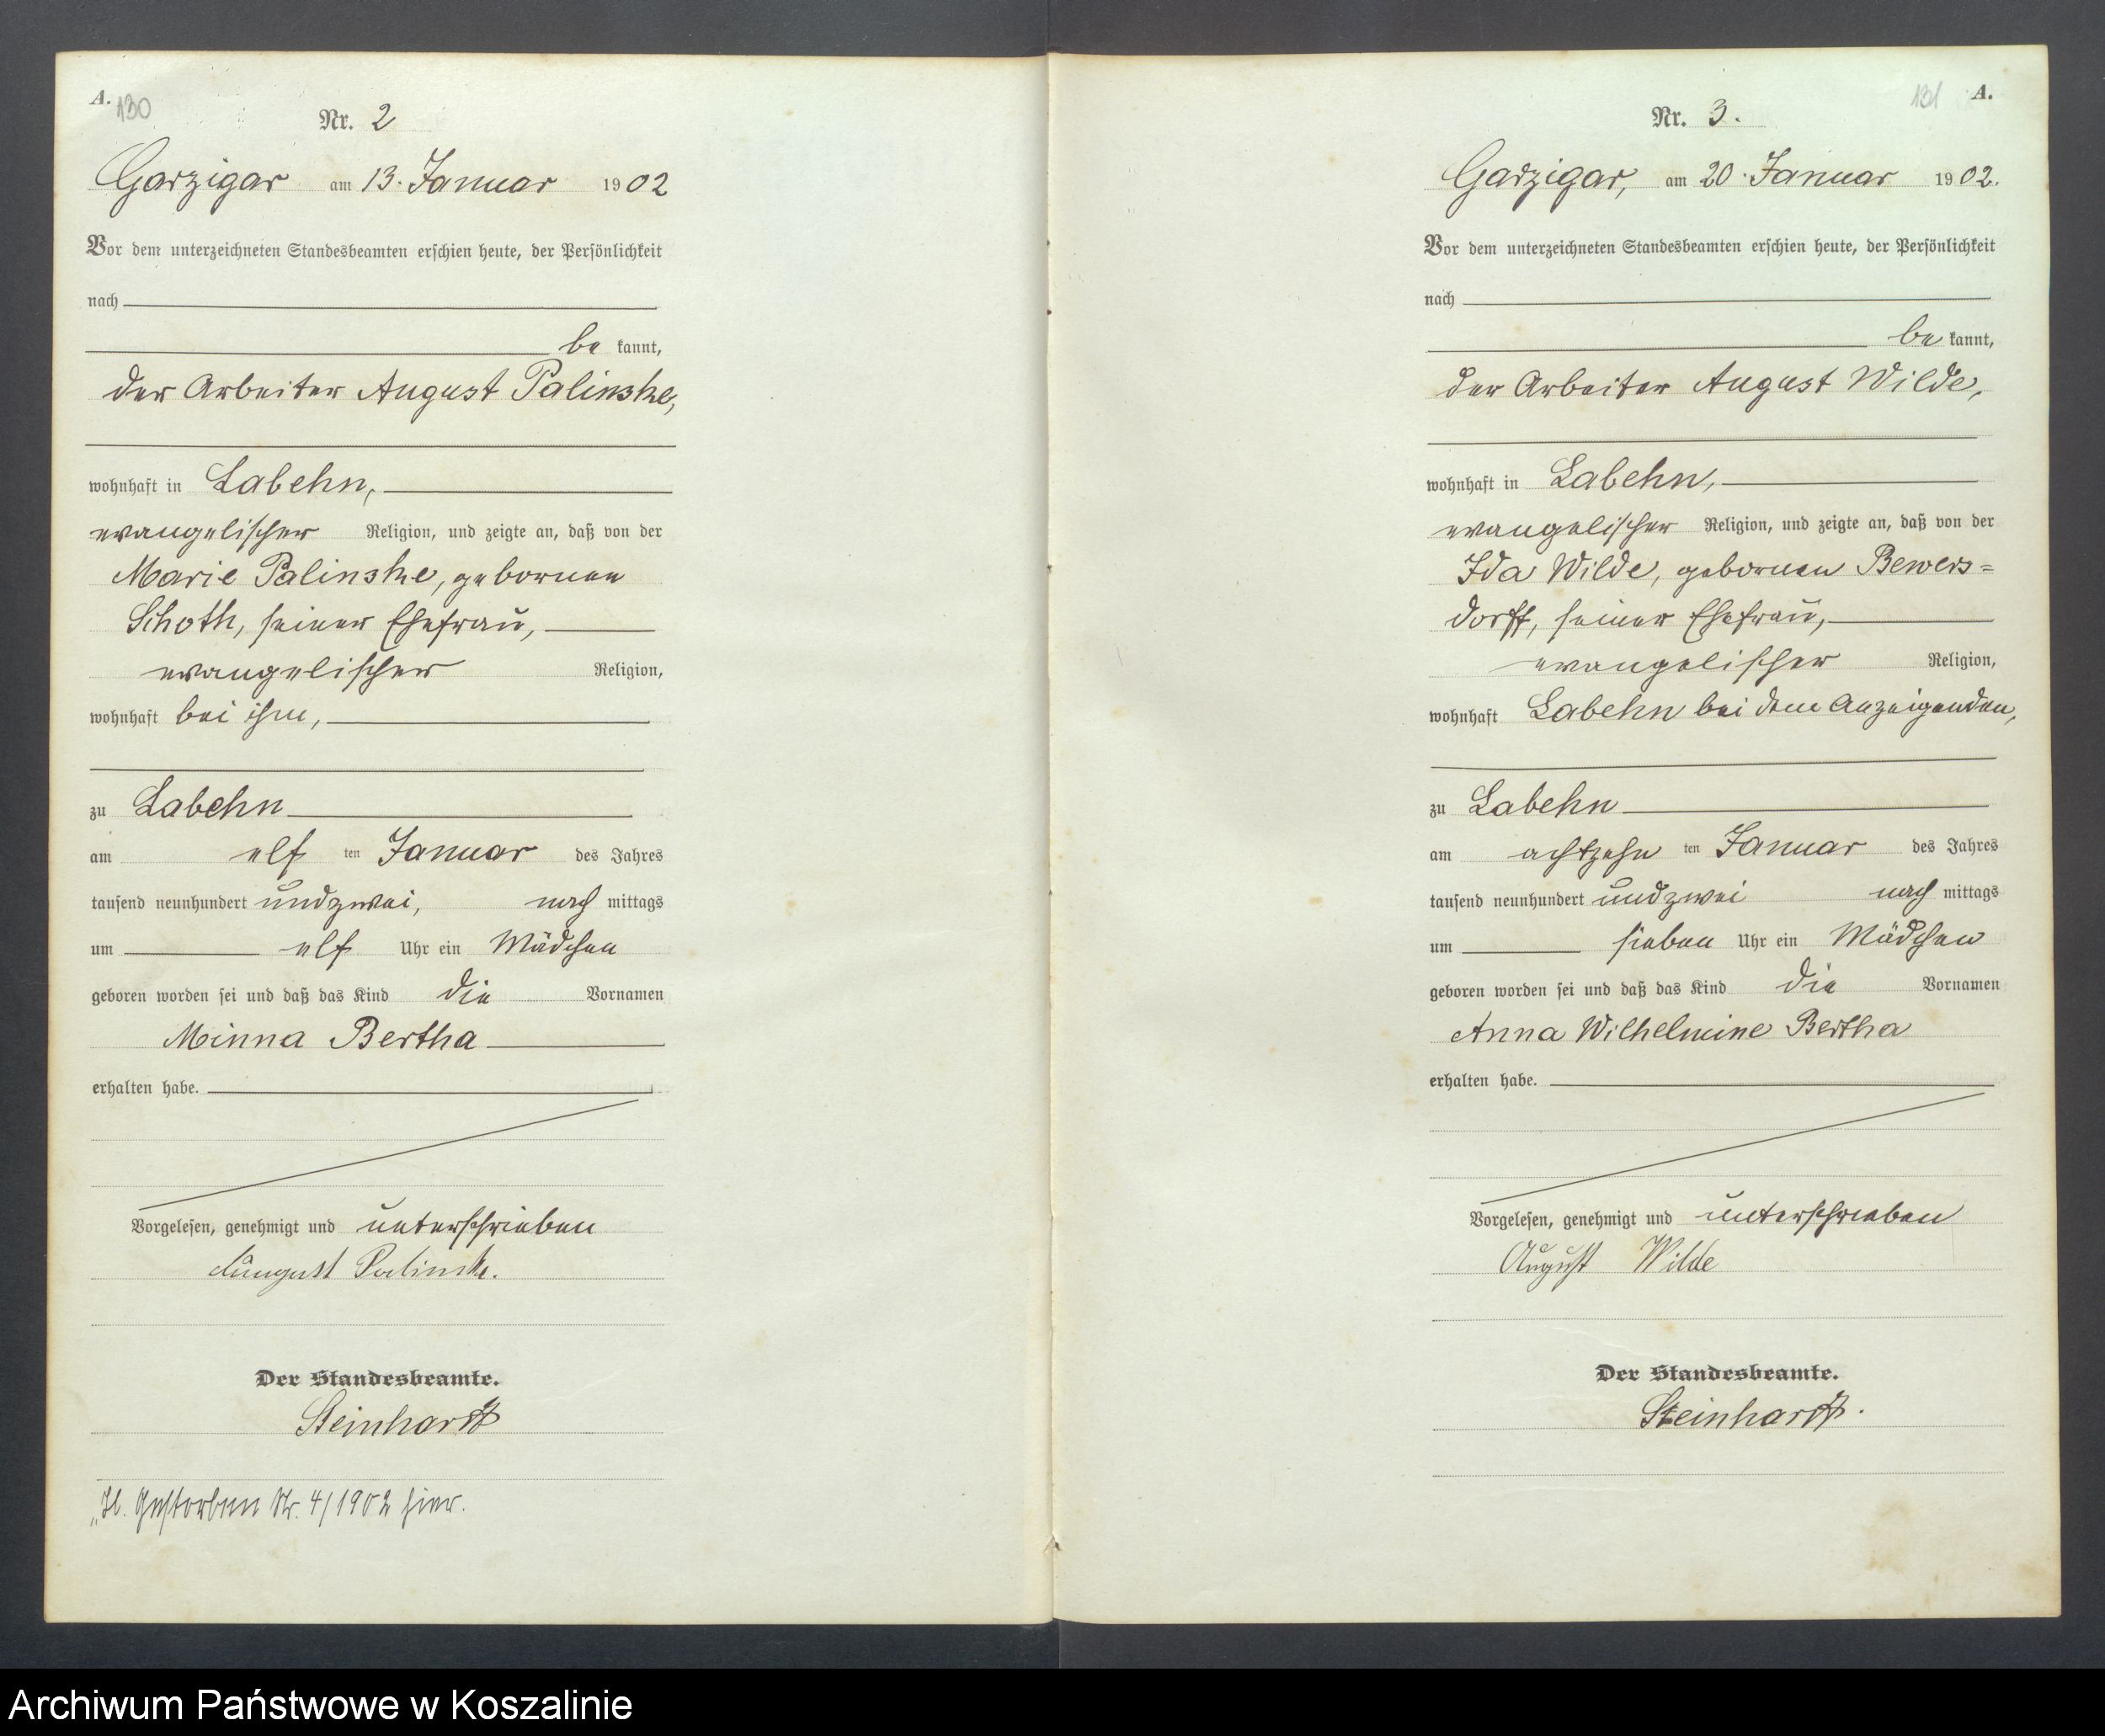 A.
130
Nr. 2
Garzigar am 13. Januar 1902
Vor dem unterzeichneten Standesbeamten erschien heute, der Persönlichkeit
nach
be kannt,
der Arbeiter August Palinske,
wohnhaft in Labehn,
evangelischer Religion, und zeigte an, daß von der
Marie Palinske, geborenen
Schoth, seiner Ehefrau,
evangelischer Religion,
wohnhaft bei ihm,
zu Labehn
am elf ten Januar des Jahres
tausend neunhundert undzwei, nach mittags
um elf Uhr ein Mädchen
geboren worden sei und daß das Kind die Vornamen
Minna Bertha
erhalten habe.
Vorgelesen, genehmigt und unterschrieben
August Palinske.
Der Standesbeamte.
Steinhardt
Gestorben Nr. 4/1902 hier.
131 A.
Nr. 3.
Garzigar, am 20. Januar 1902.
Vor dem unterzeichneten Standesbeamten erschien heute, der Persönlichkeit
nach
be kannt,
der Arbeiter August Wilde,
wohnhaft in Labehn,
evangelischer Religion, und zeigte an, daß von der
Ida Wilde, geborenen Bewers=
dorff, seiner Ehefrau,
evangelischer Religion,
wohnhaft Labehn bei dem Anzeigenden,
zu Labehn
am achtzehn ten Januar des Jahres
tausend neunhundert undzwei nach mittags
um sieben Uhr ein Mädchen
geboren worden sei und daß das Kind die Vornamen
Anna Wilhelmine Bertha
erhalten habe.
Vorgelesen, genehmigt und unterschrieben
August Wilde
Der Standesbeamte.
Steinhardt.
Archiwum Państwowe w Koszalinie